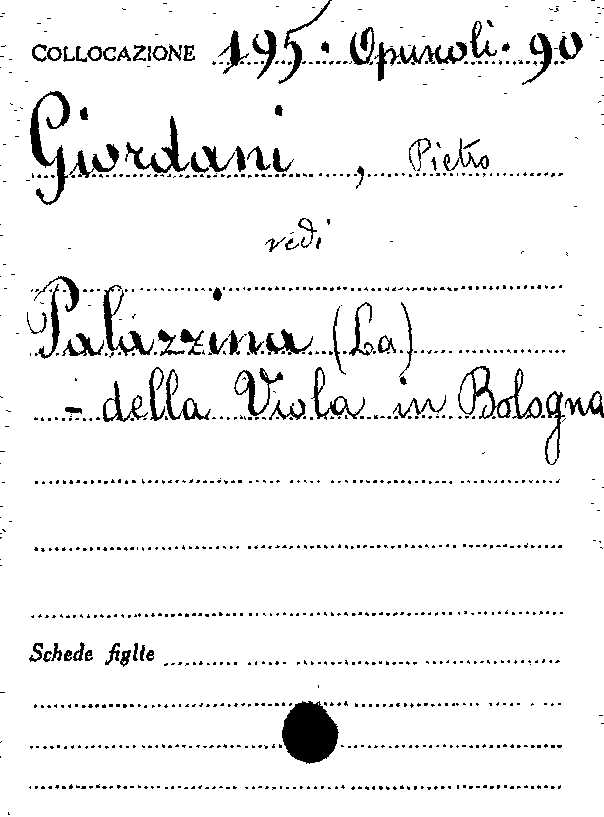 COLLOCAZIONE 195. Opuscoli. 90
Giordani, Pietro
vedi
Palazzina (La)
- della Viola in Bologna
Schede figlie